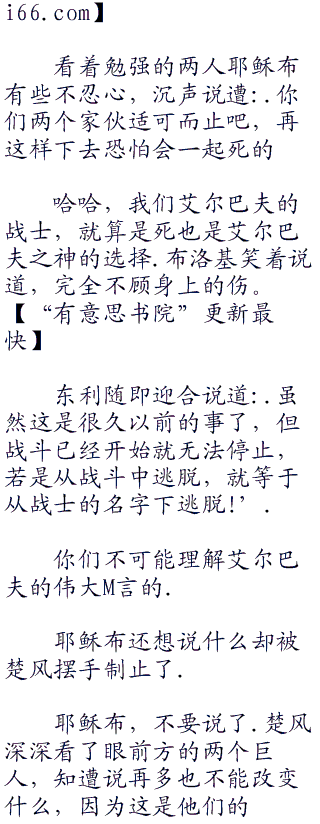 i66.com】
看着勉强的两人耶稣布
有些不忍心，沉声说遭:.你
们两个家伙适可而止吧，再
这样下去恐怕会一起死的
哈哈，我们艾尔巴夫的
战士，就算是死也是艾尔巴
夫之神的选择.布洛基笑着说
道，完全不顾身上的伤。
【“有意思书院”更新最
快】
东利随即迎合说道:.虽
然这是很久以前的事了，但
战斗已经开始就无法停止，
若是从战斗中逃脱，就等于
从战士的名字下逃脱!’.
你们不可能理解艾尔巴
夫的伟大M言的.
耶稣布还想说什么却被
楚风摆手制止了.
耶稣布，不要说了.楚风
深深看了眼前方的两个巨
人，知遭说再多也不能改变
什么，因为这是他们的